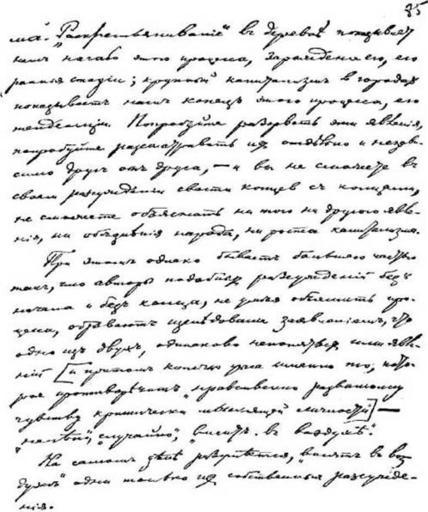 85
ма. „Раскрестьянивание" въ деревнѣ показываетъ
намъ начало этого процесса, зарожденіе его, его
раннія стадіи; крупный капитализмъ въ городахъ
показываетъ намъ конецъ этого процесса, его
тенденціи. Попробуйте разорвать эти явленія,
попробуйте разсматривать ихъ отдѣльно и незави-
симо другъ отъ друга, — и вы не сможете въ
своемъ разсужденіи свести концовъ съ концами,
не сможете объяснить ни того ни другого явле-
нія, ни обѣднѣнія народа, ни роста капитализма.
При этомъ однако бываетъ большею частью
такъ, что авторы подобныхъ разсужденій безъ
начала и безъ конца, не умѣя объяснить про-
цесса, обрываютъ изслѣдованіе заявленіемъ, что
одно изъ двухъ, одинаково непонятыхъ ими явле-
ній [и притомъ конечно ужъ именно то, кото-
рое противорѣчитъ „нравственно развитому
чувству критически мыслящей личности"] —
„нелѣпо", „случайно", „виситъ въ воздухѣ".
На самомъ дѣлѣ разумѣется, „висятъ въ воз-
духѣ" одни только ихъ собственныя разсужде-
нія.